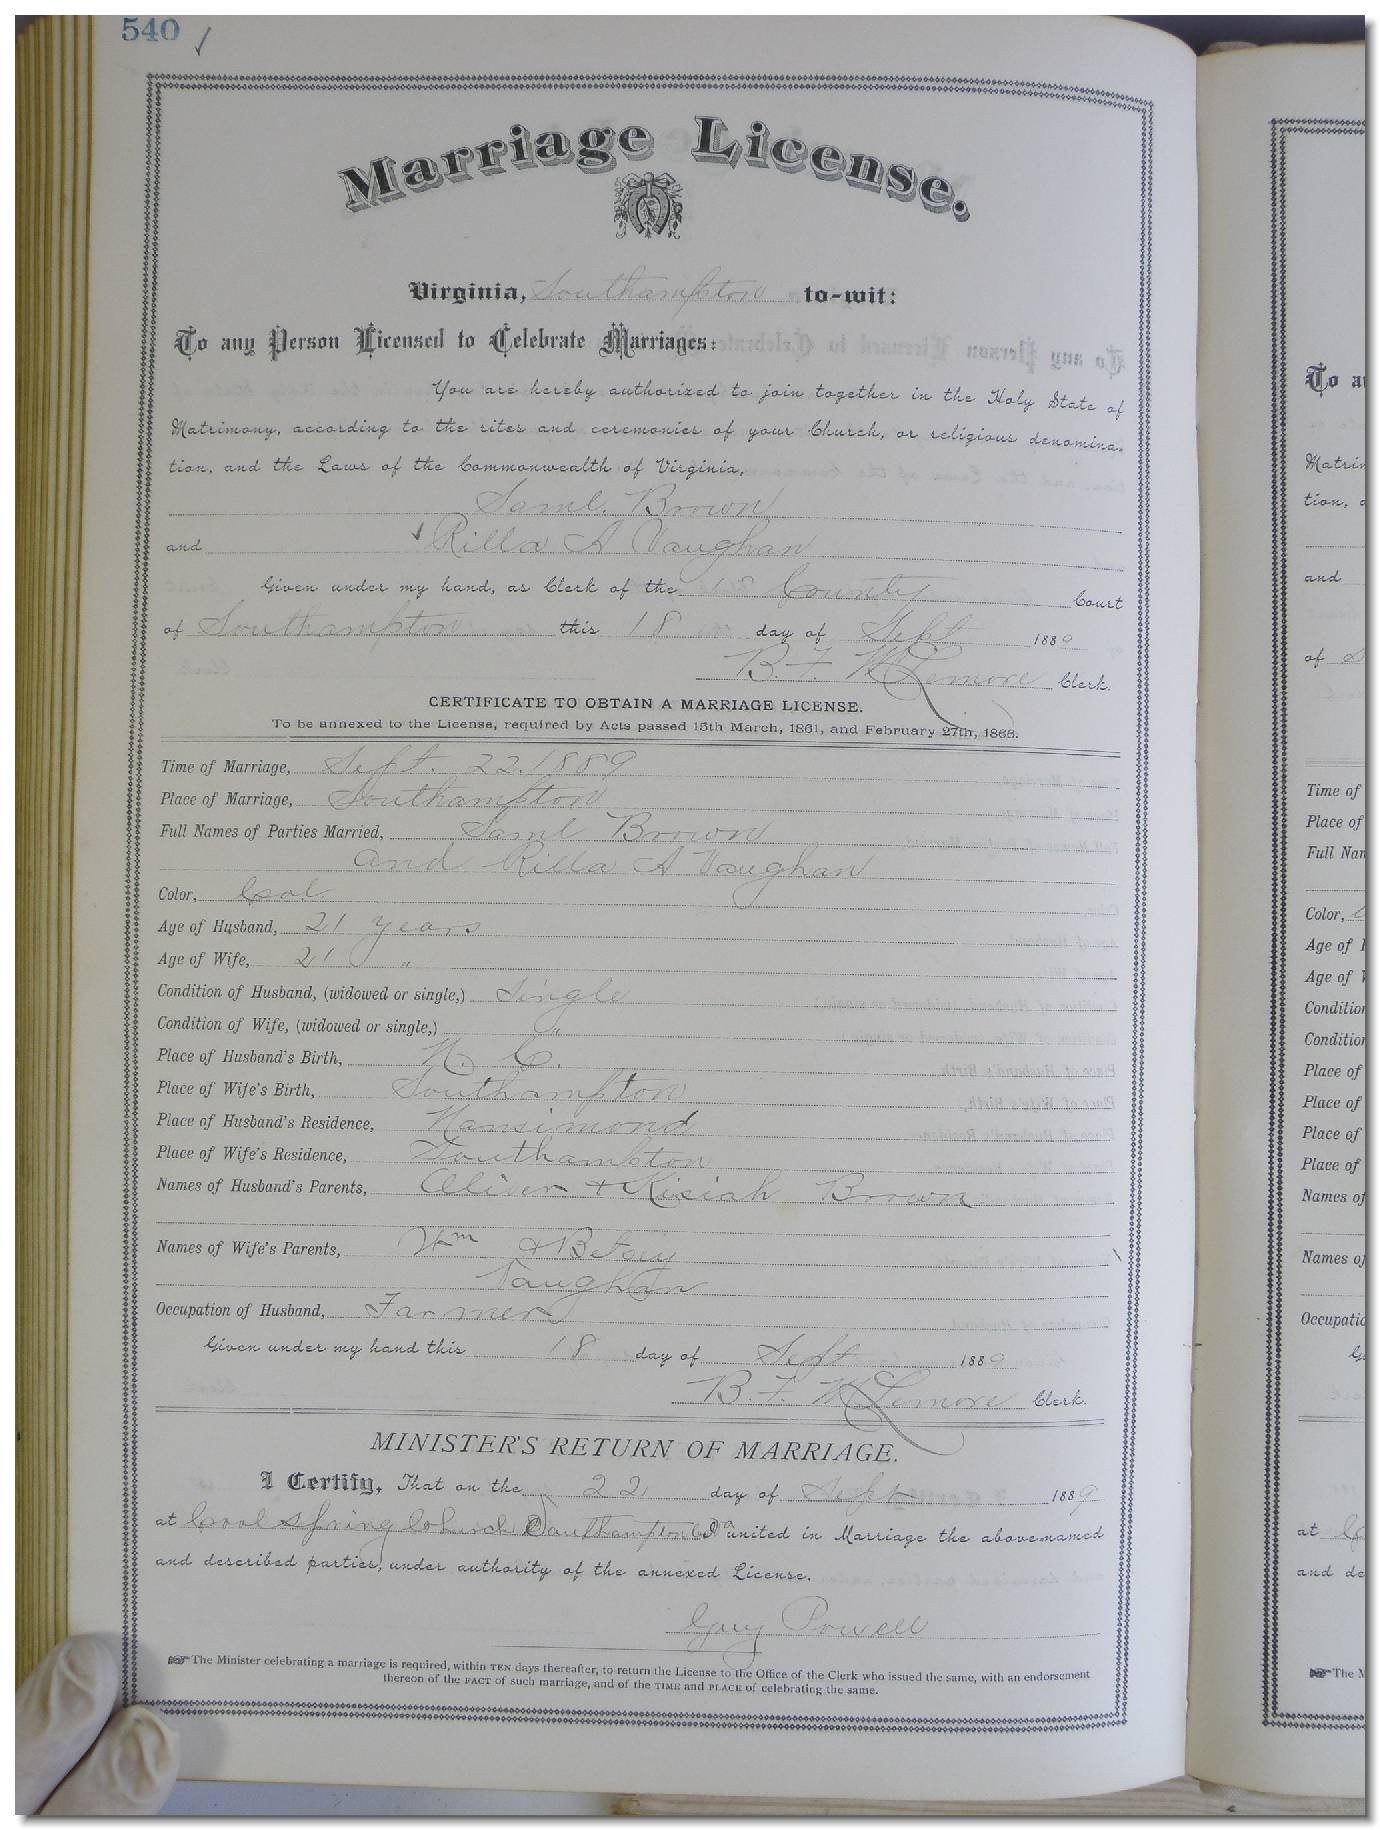 540
Marriage License.
Virginia, Southampton to-wit:
To any Person Licensed to Celebrate Marriages:
You are hereby authorized to join together in the Holy State of
Matrimony, according to the rites and ceremonies of your Church, or religious denomina-
tion, and the Laws of the Commonwealth of Virginia,
Saml. Brown
and Rilla A Vaughan
Given under my hand, as Clerk of the County Court
of Southampton this 18 day of Sept 1889
B. F. McLemore Clerk.
CERTIFICATE TO OBTAIN A MARRIAGE LICENSE.
To be annexed to the License, required by Acts passed 15th March, 1861, and February 27th, 1866.
Time of Marriage, Sept. 22. 1889
Place of Marriage, Southampton
Full Names of Parties Married, Saml Brown
and Rilla A Vaughan
Color, Col.
Age of Husband, 21 years
Age of Wife, 21 "
Condition of Husband, (widowed or single,) Single
Condition of Wife, (widowed or single,) "
Place of Husband's Birth, N. C.
Place of Wife's Birth, Southampton
Place of Husband's Residence, Nansimond
Place of Wife's Residence, Southampton
Names of Husband's Parents, Oliver + Kisiah Brown
Names of Wife's Parents, Wm &
Vaughan
Occupation of Husband, Farmer
Given under my hand this 18 day of Sept 1889
B. F. McLemore Clerk.
MINISTER'S RETURN OF MARRIAGE.
I Certify, That on the 22 day of Sept 1889
at Cool Spring Church Southampton Co I united in Marriage the above-named
and described parties, under authority of the annexed License.
Guy Powell
The Minister celebrating a marriage is required, within TEN days thereafter, to return the License to the Office of the Clerk who issued the same, with an endorsement
thereon of the FACT of such marriage, and of the TIME and PLACE of celebrating the same.
To a
Matrim
tion,
and
of
Time of
Place of
Full Nam
Color,
Age of
Age of
Condition
Condition
Place of
Place of
Place of
Place of
Names of
Names of
Occupatio
at
and de
The M